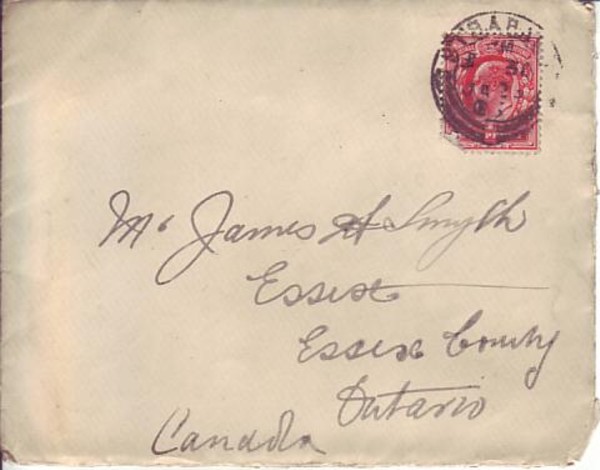 Mr James H Smyth
Essex
Essex County
Ontario
Canada